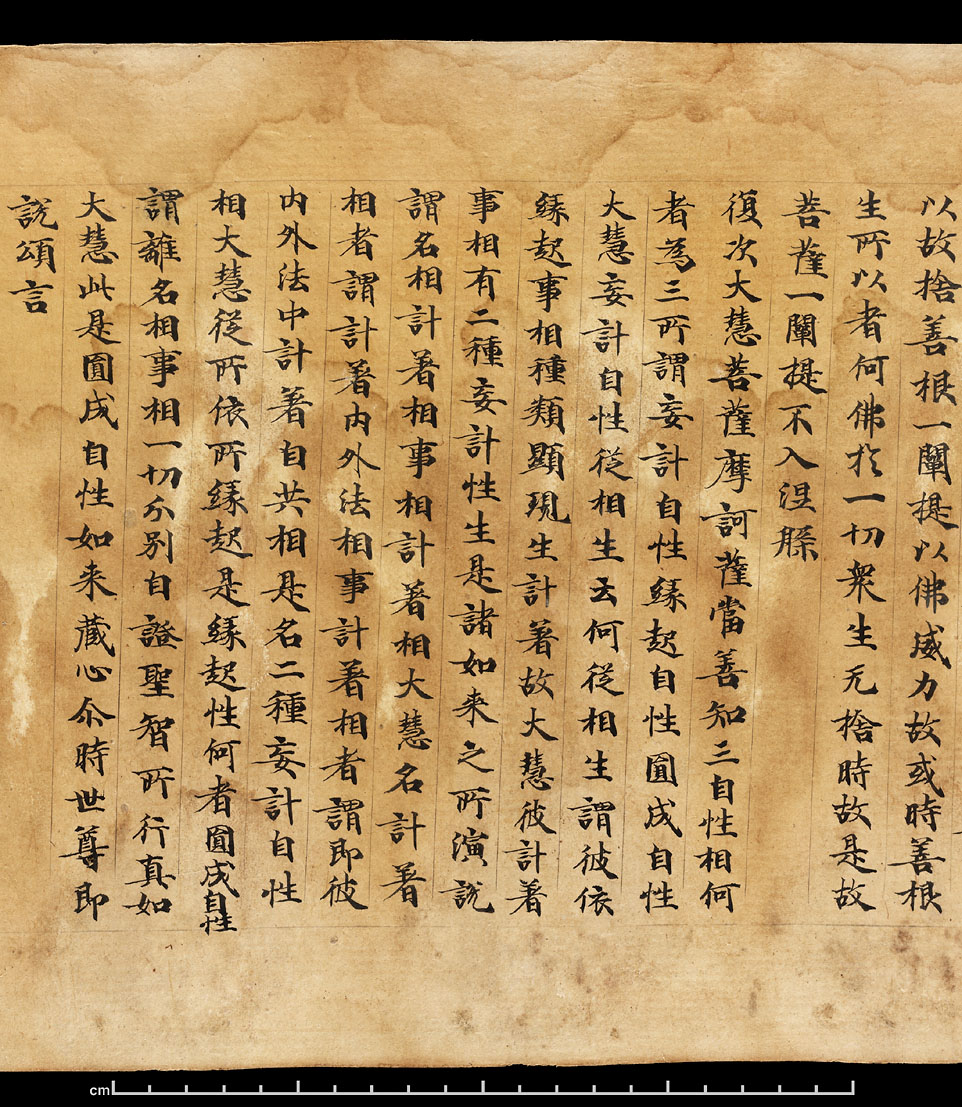 以故捨善根一闡提以佛威力故或時善根
生所以者何佛於一切衆生无捨時故是故
菩薩一闡提不入涅槃
復次大慧菩薩摩訶薩當善知三自性相何
者為三所謂妄計自性緣起自性圓成自性
大慧妄計自性從相生云何從相生謂彼依
緣起事相種類顯現生計著故大慧彼計著
事相有二種妄計性生是諸如来之所演說
謂名相計著相事相計著相大慧名計著
相者謂計著内外法相事計著相者謂即彼
内外法中計著自共相是名二種妄計自性
相大慧從所依所緣起是緣起性何者圓成自性
謂離名相事相一切分別自證聖智所行真如
大慧此是圓成自性如来藏心尒時世尊即
說頌言
cm